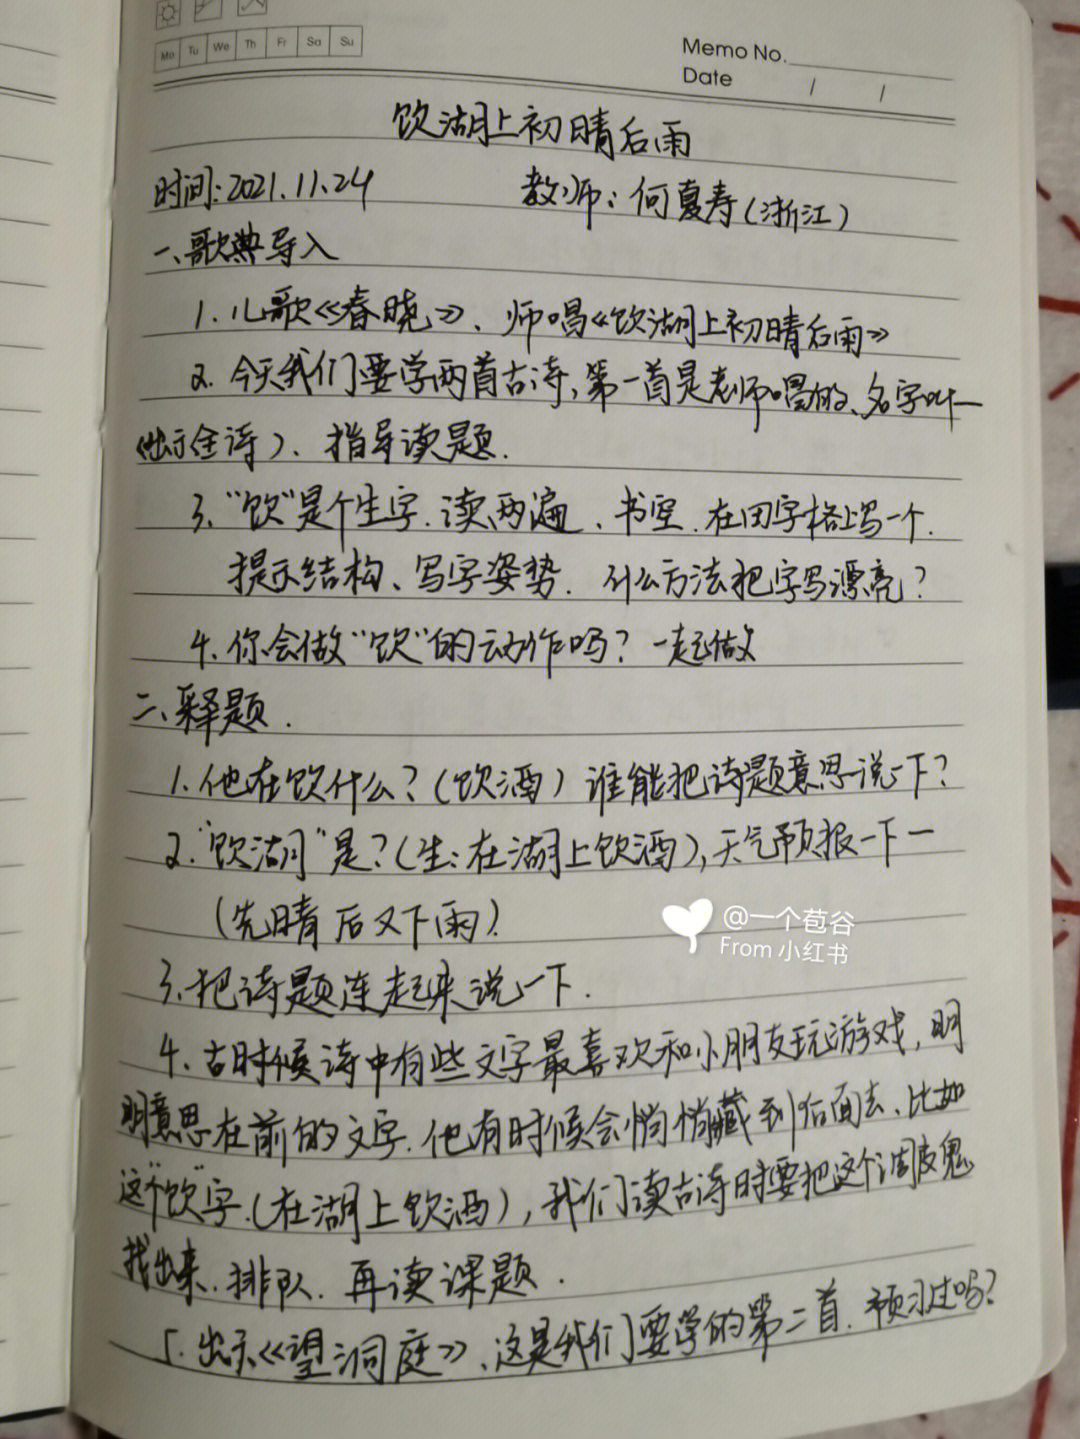 Mo Tu We Th Fr Sa Su
Memo No.
Date / /
饮湖上初晴后雨
时间:2021.11.24 教师:何夏寿(浙江)
一、歌典导入
1.儿歌《春晓》、师唱《饮湖上初晴后雨》
2.今天我们要学两首古诗、第一首是老师唱的、名字叫—
(出示全诗)、指导读题.
3、“饮”是个生字.读两遍、书空.在田字格上写一个.
提示结构、写字姿势.什么方法把字写漂亮?
4、你会做“饮”的动作吗?一起做
二、释题.
1.他在饮什么?(饮酒)谁能把诗题意思说一下?
2.“饮湖”是?(生:在湖上饮酒),天气预报一下一
(先晴后又下雨)
3、把诗题连起来说一下.
4、古时候诗中有些文字最喜欢和小朋友玩游戏,明
明意思在前的文字.他有时候会悄悄藏到后面去、比如
这个“饮”字.(在湖上饮酒),我们读古诗时要把这个调皮鬼
找出来、排队、再读课题.
5、出示《望洞庭》、这是我们要学的第二首.预习过吗?
@一个苞谷
From 小红书